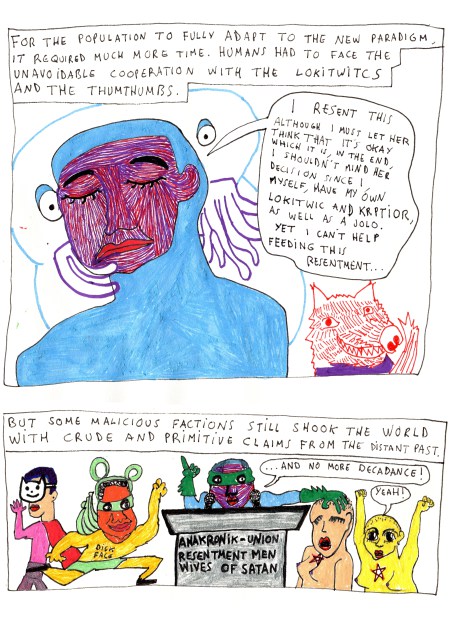 FOR THE POPULATION TO FULLY ADAPT TO THE NEW PARADIGM,
IT REQUIRED MUCH MORE TIME. HUMANS HAD TO FACE THE
UNAVOIDABLE COOPERATION WITH THE LOKITWITCS
AND THE THUMTHUMBS.
I RESENT THIS
ALTHOUGH I MUST LET HER
THINK THAT IT'S OKAY
WHICH IT IS, IN THE END.
I SHOULDN'T MIND HER
DECISION SINCE I
MYSELF, HAVE MY OWN
LOKITWIC AND KRPTIOR,
AS WELL AS A JOLO.
YET I CAN'T HELP
FEEDING THIS
RESENTMENT...
BUT SOME MALICIOUS FACTIONS STILL SHOOK THE WORLD
WITH CRUDE AND PRIMITIVE CLAIMS FROM THE DISTANT PAST.
...AND NO MORE DECADANCE!
YEAH!
DICK
FACE
ANAKRONIK-UNION
RESENTMENT MEN
WIVES OF SATAN